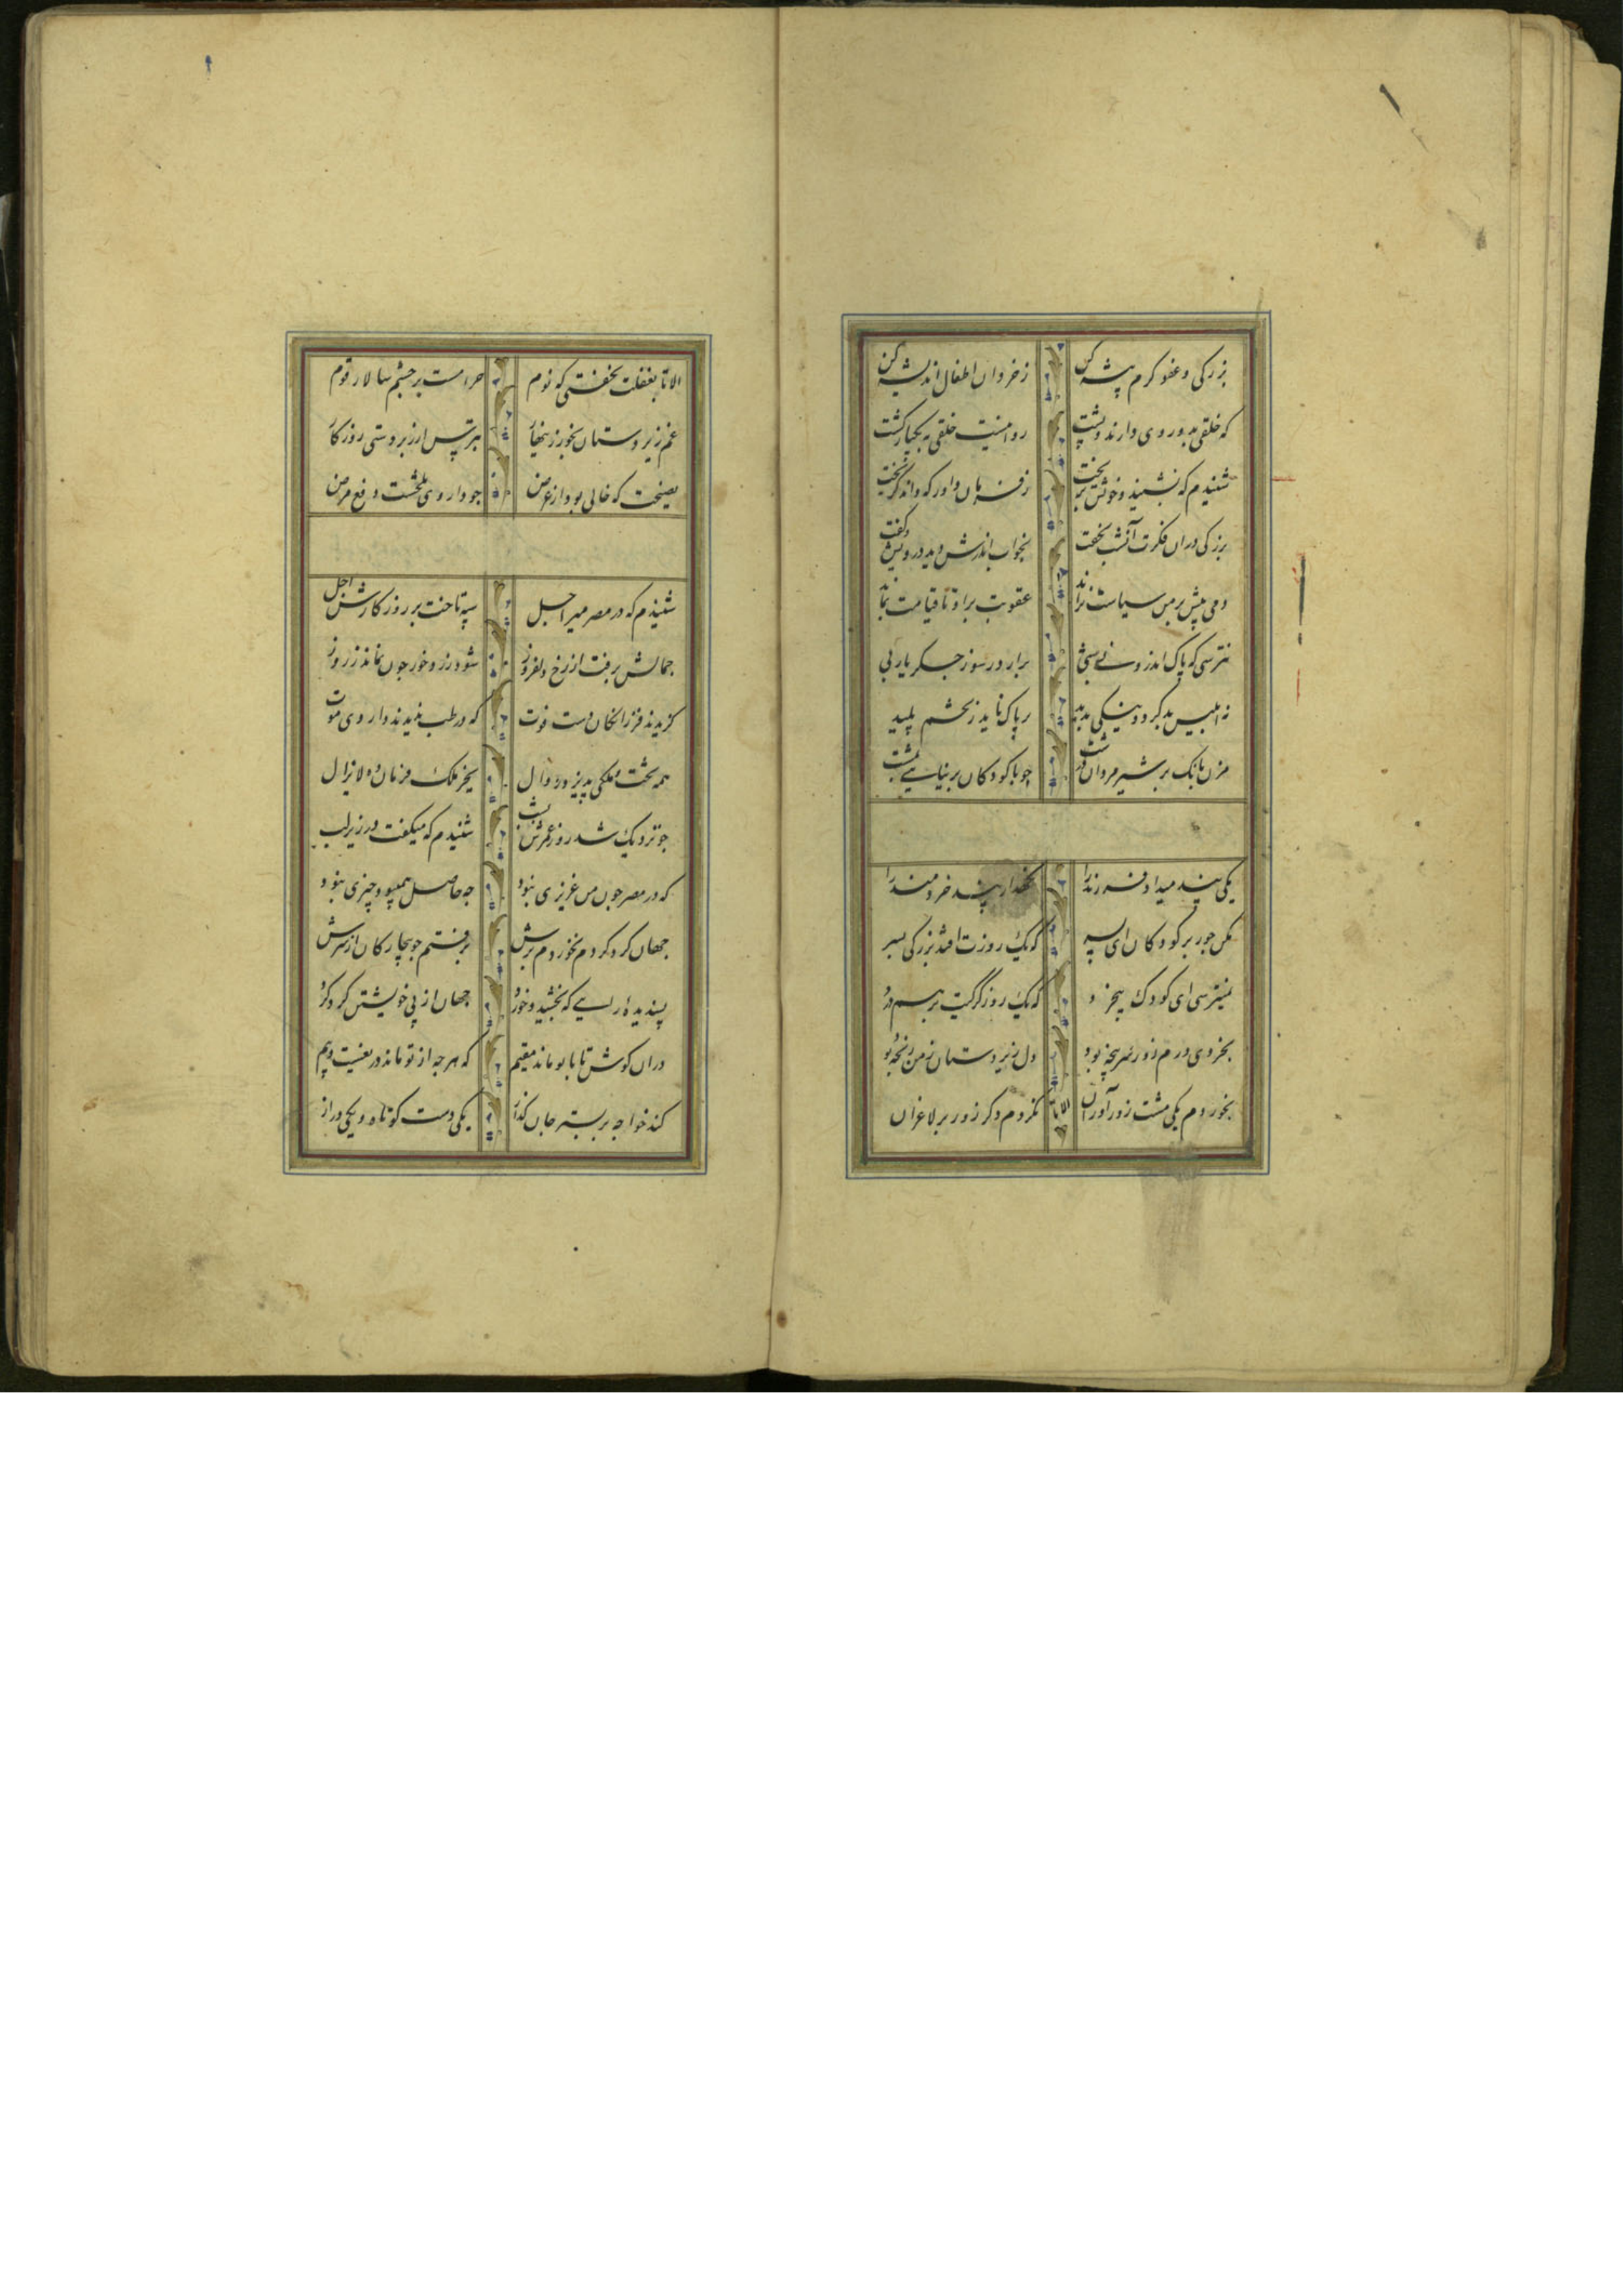 بزرگی و عفو کرم پیشه کن
ز خردان اطفال اندیشه کن
که خلقی بدو روی دارند و پشت
روا نیست خلقی به یکبار کشت
شنیدم که نشنید و خونش بریخت
ز فرمان داور که داند گریخت
بزرگی دران فکرت آنشب بخفت
بخواب اندرش دید درویش و گفت
دمی پیش بر من سیاست نراند
عقوبت برو تا قیامت بماند
نترسی که پاک اندرونی شبی
برارد ز سوز جگر یاربی
نه ابلیس بد کرد و نیکی ندید
بر پاک ناید ز تخم پلید
مزن بانگ بر شیر مردان درشت
چو با کودکان بر نیایی بمشت
یکی پند میداد فرزند را
نگهدار پند خردمند را
مکن جور بر کودکان ای پسر
که یک روزت افتد بزرگی بسر
نمیترسی ای کودک بیخرد
که یک روز گرگیت بر هم درد
بخردی درم زور سرپنجه بود
دل زیردستان ز من رنجه بود
بخوردم یکی مشت زورآوران
نکردم دگر زور بر لاغران
الا تا
الا تا بغفلت نخفتی که نوم
حرامست بر چشم سالار قوم
غم زیردستان بخور زینهار
بترس از زبردستی روزگار
نصیحت که خالی بود از غرض
چو داروی تلخست دفع مرض
شنیدم که در مصر میر اجل
سپه تاخت بر روزگارش اجل
جمالش برفت از رخ دلفروز
شود زرد خور چون نماند ز روز
گزیدند فرزانگان دست فوت
که در طب ندیدند داروی موت
همه تخت و ملکی پذیرد زوال
بجز ملک فرمان ده لایزال
چو نزدیک شد روز عمرش بشب
شنیدم که میگفت در زیر لب
که در مصر چون من عزیزی نبود
چه حاصل همین بود چیزی نبود
جهان گرد کردم نخوردم برش
برفتم چو بیچارگان از سرش
پسندیده رایی که بخشید و خورد
جهان از پی خویشتن گرد کرد
دران کوش تا با تو ماند مقیم
که هرچه از تو ماند دریغست و بیم
کند خواجه بر بستر جان گداز
یکی دست کوتاه و یکی دراز